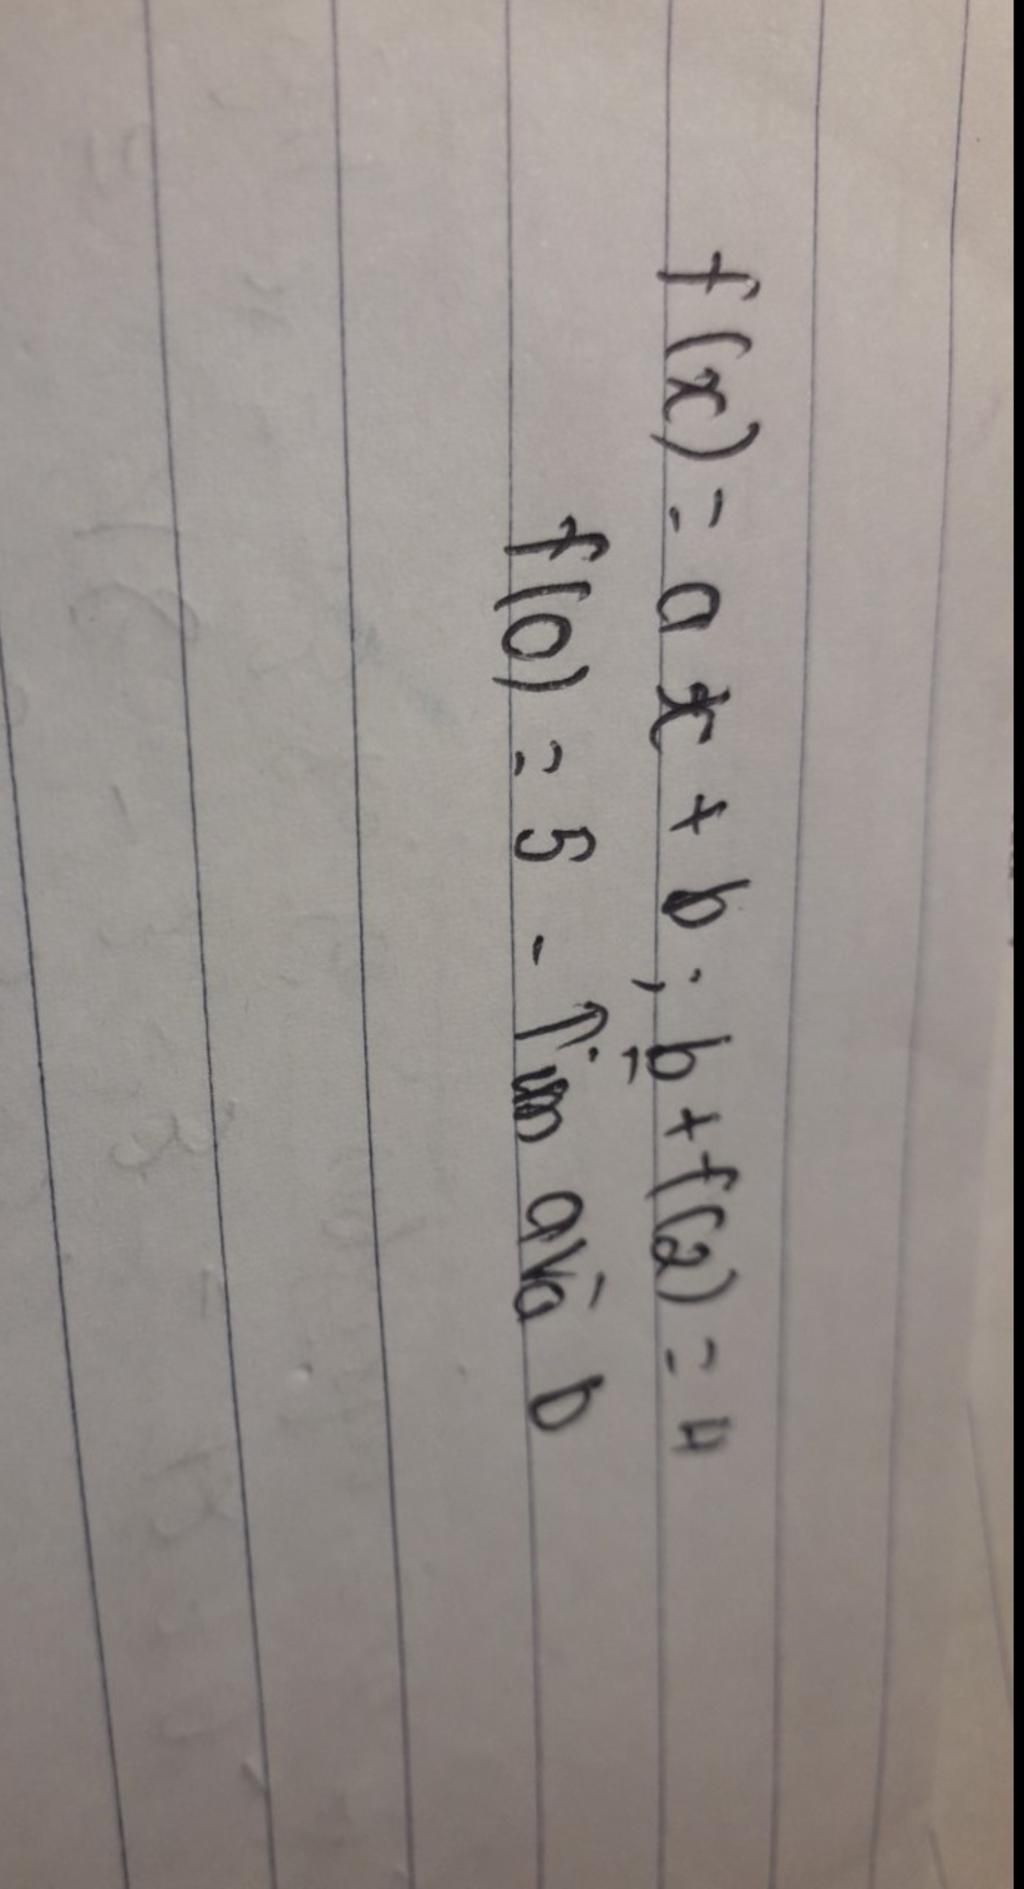 f(x) = ax + b ; b + f(2) = 4
f(0) = 5 - Tìm a và b